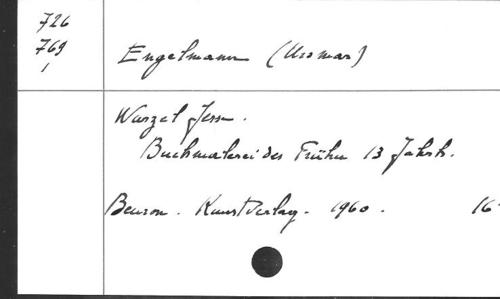 726
769
1
Engelmann (Ursmar)
Wurzel Jesse.
Buchmalerei des Frühen 13 Jahrh.
Beuron. Kunstverlag. 1960. 16